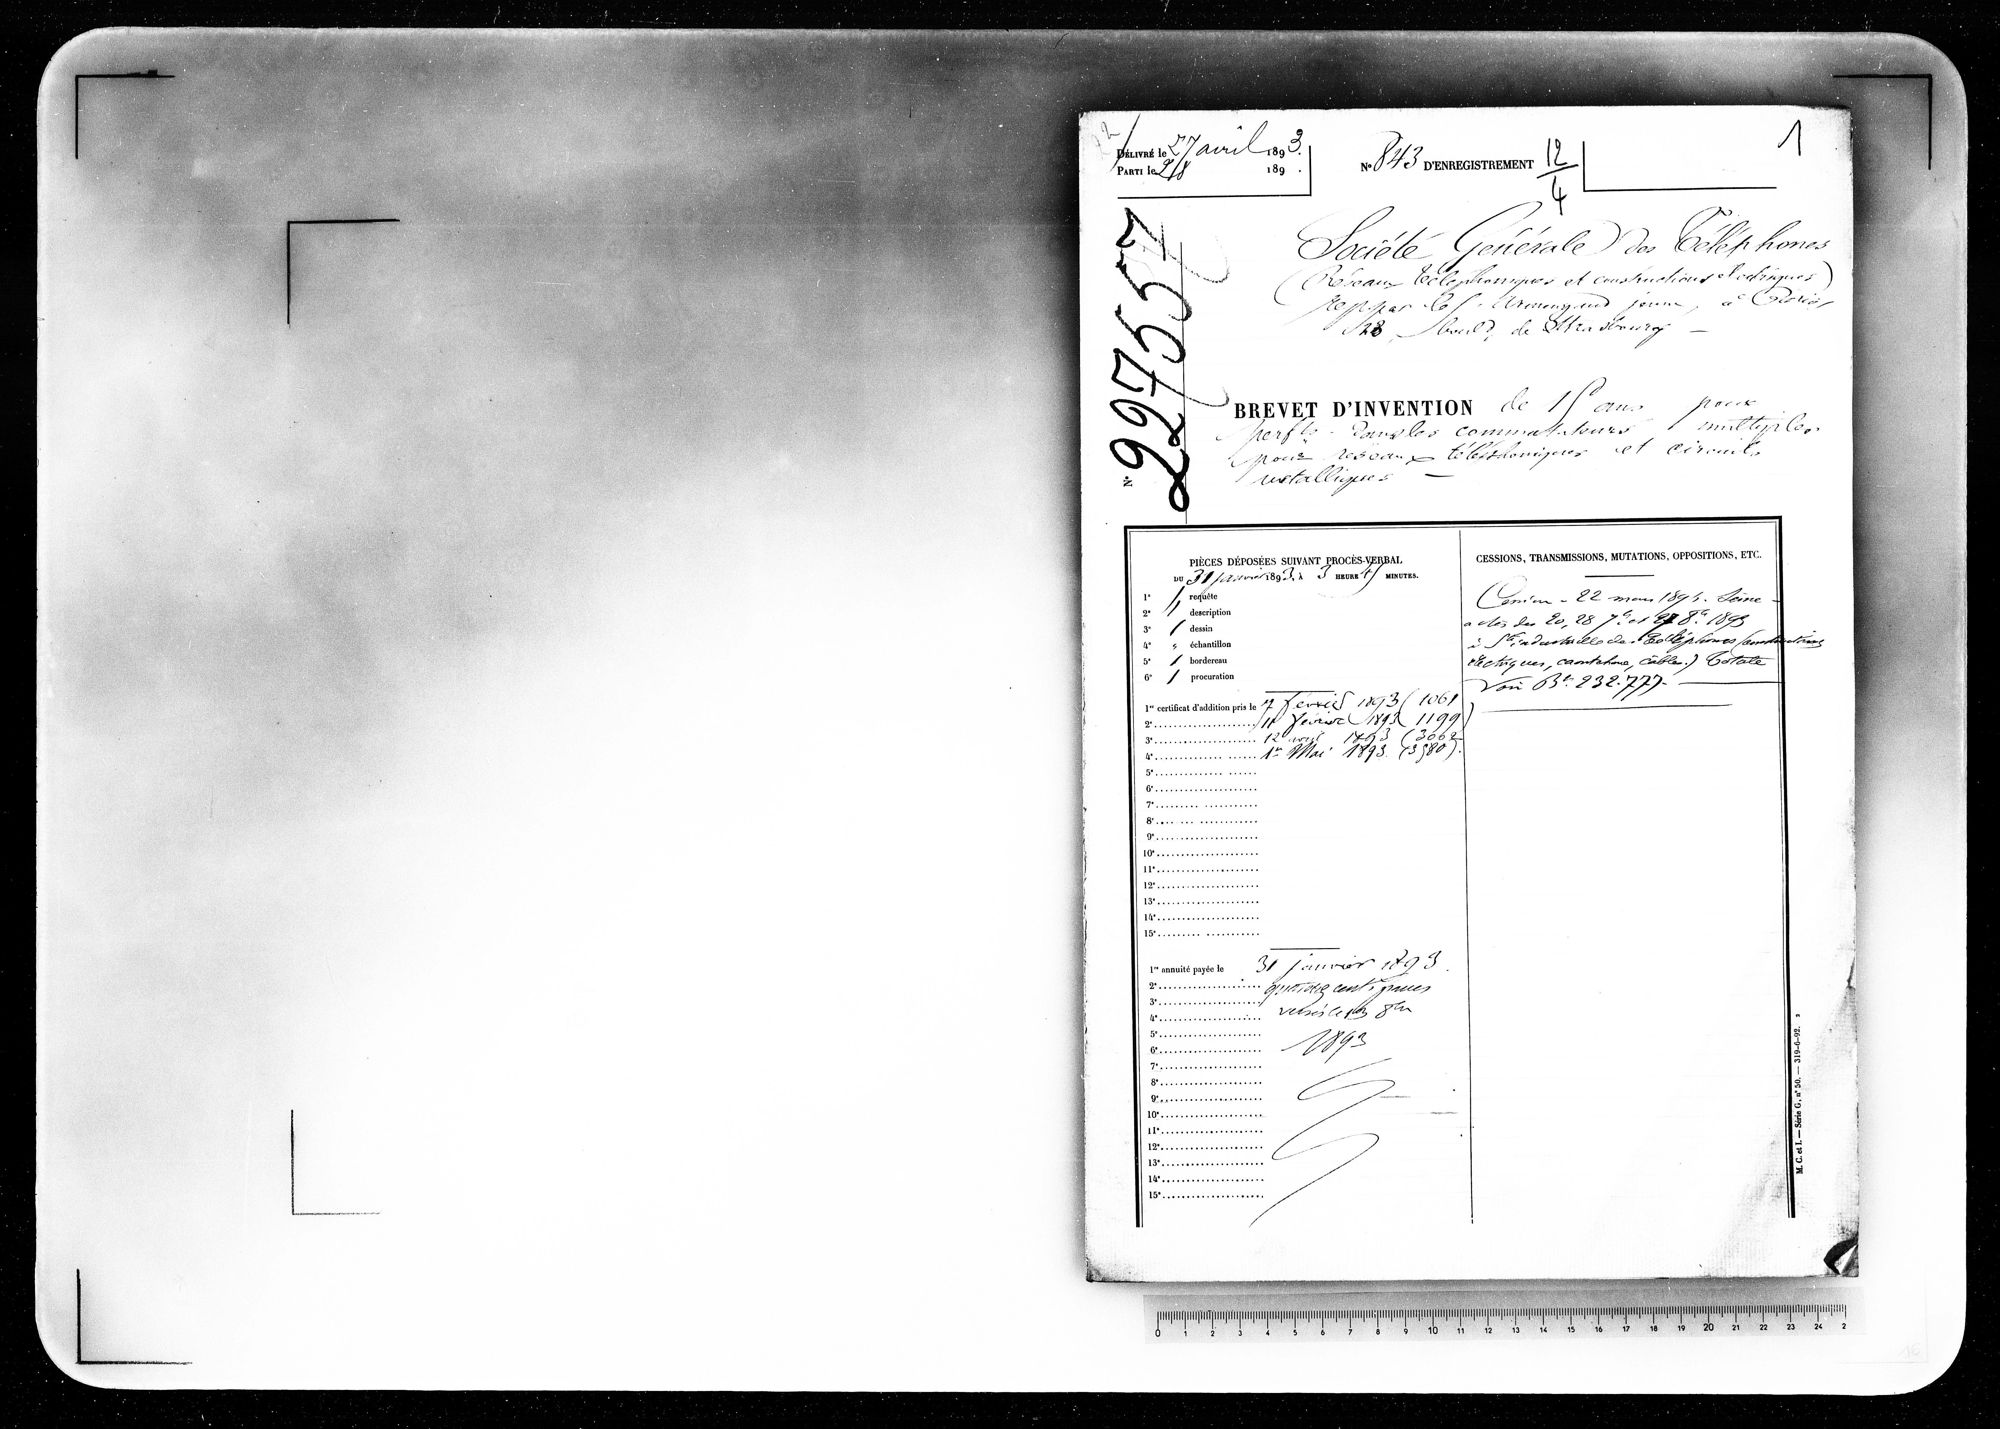 1
DÉLIVRÉ le 27 avril 1893.
PARTI le 2/8 189 .
N° 843 D'ENREGISTREMENT 12/4
N° 227557
Société Générale des Téléphones
(Réseaux téléphoniques et constructions électriques)
rep. par le S. Armengaud jeune, à Paris
23, bould. de Strasbourg —
BREVET D'INVENTION de 15 ans pour
perfts. dans les commutateurs multiples
pour réseaux téléphoniques et circuits
métalliques —
PIÈCES DÉPOSÉES SUIVANT PROCÈS-VERBAL
DU 31 janvier 1893, À 3 HEURE 15 MINUTES.
1° 1 requête
2° 1 description
3° 1 dessin
4° " échantillon
5° 1 bordereau
6° 1 procuration
1er certificat d'addition pris le 7 février 1893 (1061
2e 11 février 1893 (1199)
3e 12 avril 1893 (3062
4e 1er Mai 1893. (3580).
5e
6e
7e
8e
9e
10e
11e
12e
13e
14e
15e
1re annuité payée le 31 janvier 1893.
2e quatorze cents francs
3e
4e versés le 8bre
5e
6e 1893
7e
8e
9e
10e
11e
12e
13e
14e
15e
CESSIONS, TRANSMISSIONS, MUTATIONS, OPPOSITIONS, ETC.
Cession - 22 mars 1894. Seine -
actes des 20, 28 7bre et 27 8bre 1893
à Sté industrielle des Téléphones (constructions
électriques, caoutchouc, câbles.) Totale
Voir Bt. 232.777. —
M. C. et I. — Série G, n° 50. — 319-6-92.
0 1 2 3 4 5 6 7 8 9 10 11 12 13 14 15 16 17 18 19 20 21 22 23 24 2